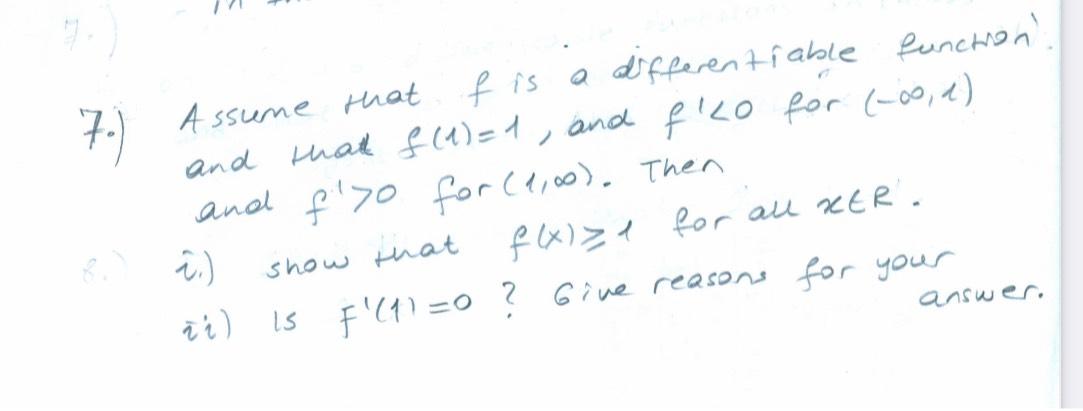 7.) Assume that f is a differentiable function.
and that f(1)=1, and f'<0 for (-∞,1)
and f'>0 for (1,∞). Then
i.) show that f(x)≥1 for all x∈R.
ii) is F'(1)=0? Give reasons for your
answer.